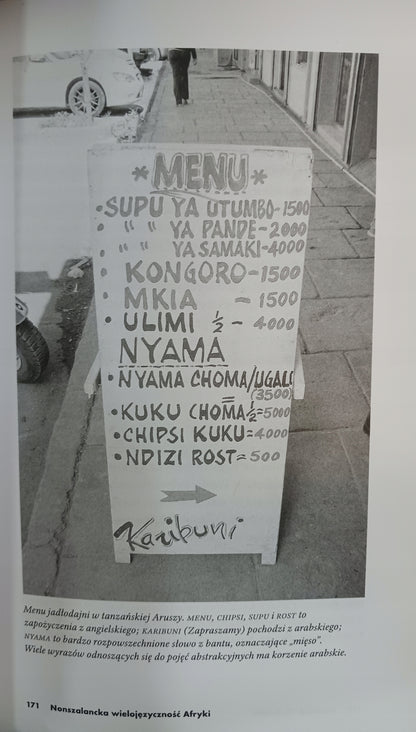 *MENU*
•SUPU YA UTUMBO-1500
• " " YA PANDE-2000
• " " YA SAMAKI-4000
• KONGORO-1500
• MKIA - 1500
• ULIMI ½ - 4000
NYAMA
• NYAMA CHOMA/UGALI
(3500)
•KUKU CHOMA ½=5000
•CHIPSI KUKU=4000
•NDIZI ROST=500
→
Karibuni
Menu jadłodajni w tanzańskiej Aruszy. MENU, CHIPSI, SUPU i ROST to
zapożyczenia z angielskiego; KARIBUNI (Zapraszamy) pochodzi z arabskiego;
NYAMA to bardzo rozpowszechnione słowo z bantu, oznaczające „mięso”.
Wiele wyrazów odnoszących się do pojęć abstrakcyjnych ma korzenie arabskie.
171 Nonszalancka wielojęzyczność Afryki